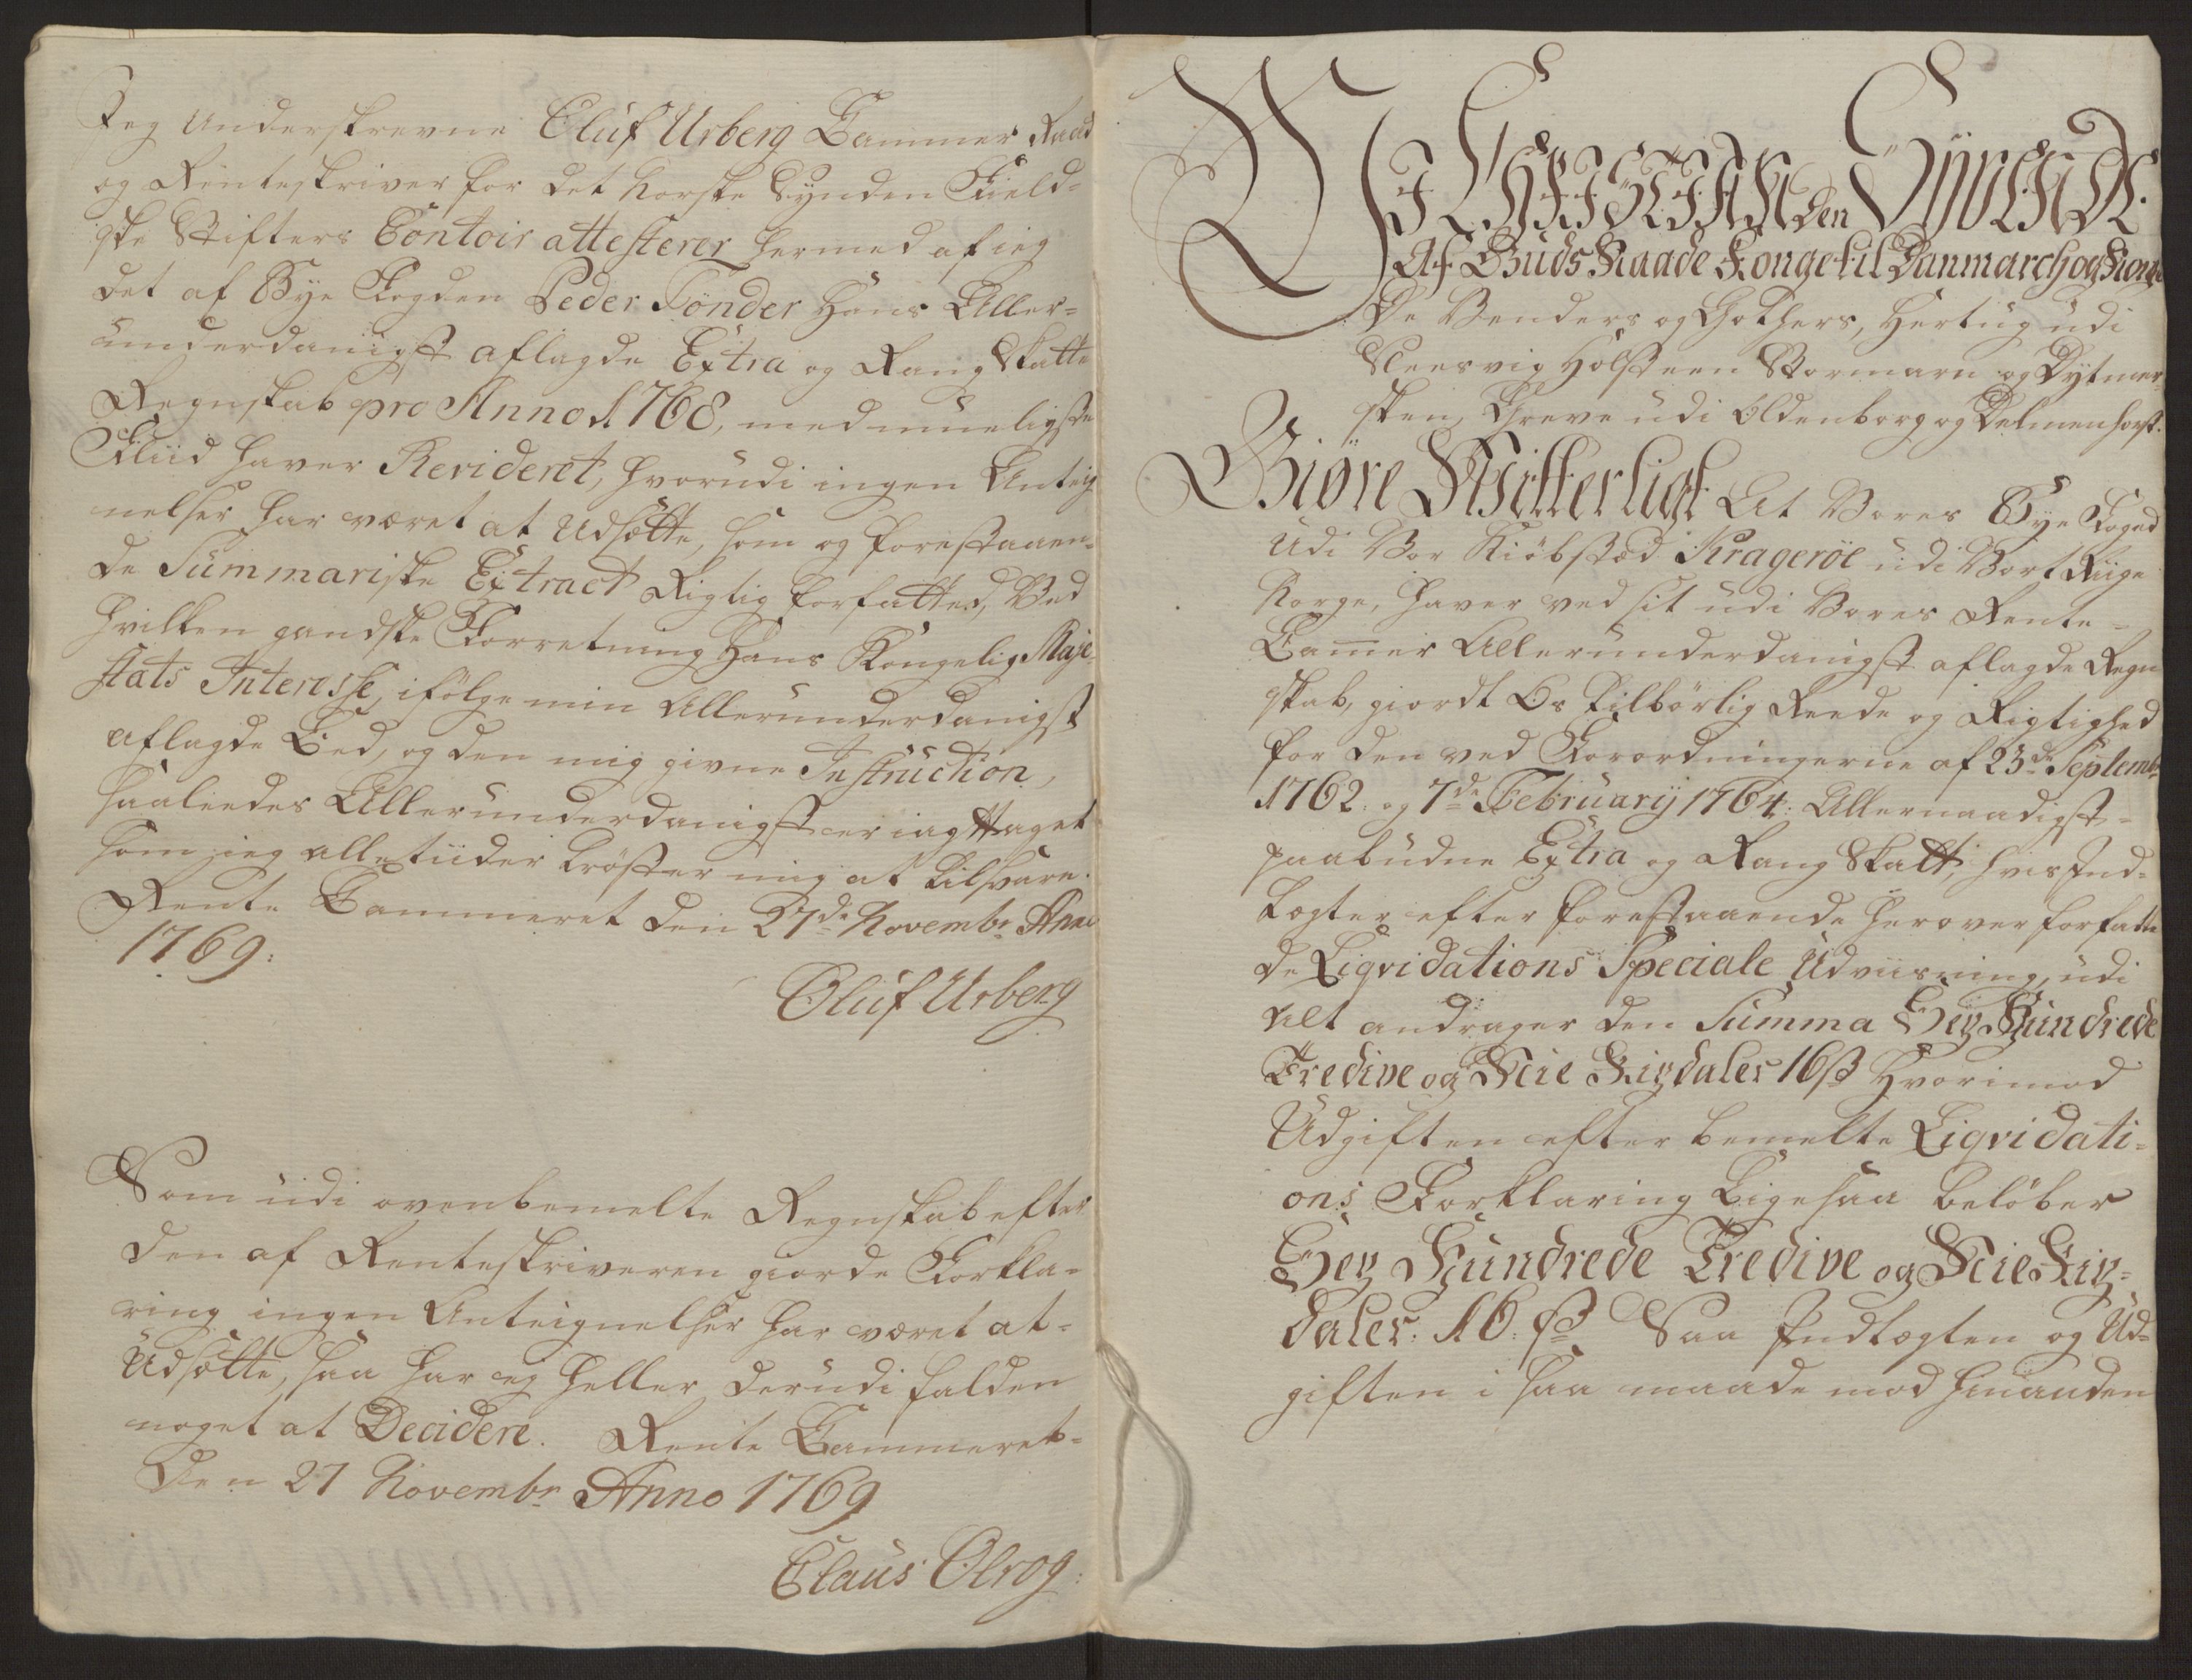 Jeg Underskrevne Oluf Urberg Cammer Raad
og Renteskriver for det Norske Synden Field-
ske Stifters Contoir attesterer hermed at jeg
det af Bye Fogden Peder Tönder Hans Aller-
underdanigst aflagde Extra og Rang Skatte
Regnskab pro Anno 1768, med mueligste
Fliid haver Revideret, hvorudi ingen Anteig
nelser har været at Udsætte, som og forestaaen-
de Summariske Extract Rigtig forfatted, Ved
hvilken gandske Forretning Hans Kongelig Maje-
stæts Interesse, ifölge min Allerunderdanigst
aflagde Eed, og den mig givne Instruction,
saaledes Allerunderdanigst er iagttaget
som jeg alle tiider tröster mig at tilsvare.
Rente Cammeret den 27de Novembr Anno
1769:
Oluf Urberg
Som udi ovenbemelte Regnskab efter
den af Renteskriveren giorde Forkla-
ring ingen Anteignelser har været at-
Udsætte, saa har ej heller derudi falden
noget at Decidere. Rente Cammeret-
Den 27 Novembr Anno 1769
Claus Olrog:
Vi CHRISTIAN den SYVENDE.
Af Guds Naade Konge til Danmarch og Norge
De Venders og Gothers, Hertug udi
Sleesvig Holsteen Stormarn og Dytmer
sken, Greve udi Oldenborg og Delmenhorst.
Giöre Witterligt At Vores Bye Foged
udi Vor Kiöbstæd Krageröe udi Vort Riige
Norge, haver ved sit udi Vores Rente-
Camer Allerunderdanigst aflagde Regn
skab, giordt Os tilbörlig Reede og Rigtighed
for den ved Forordningerne af 23de Septembr
1762. og 7de Februarij 1764: Allernaadigst-
paabudne Extra og Rang Skatt, hvis Ind-
tægter efter forestaaende herover forfatte
de Liqvidations Speciale Udviisning, udi
alt andrager den Summa Sex Hundrede
Tredive og Nie Rixdaler 16 ß Hvorimod
Udgiften efter bemelte Liqvidati-
ons Forklaring Ligesaa belöber
Sex Hundrede Tredive og Nie Rix-
daler. 16. ß Saa Indtægten og Ud-
giften i saa maade mod hinanden